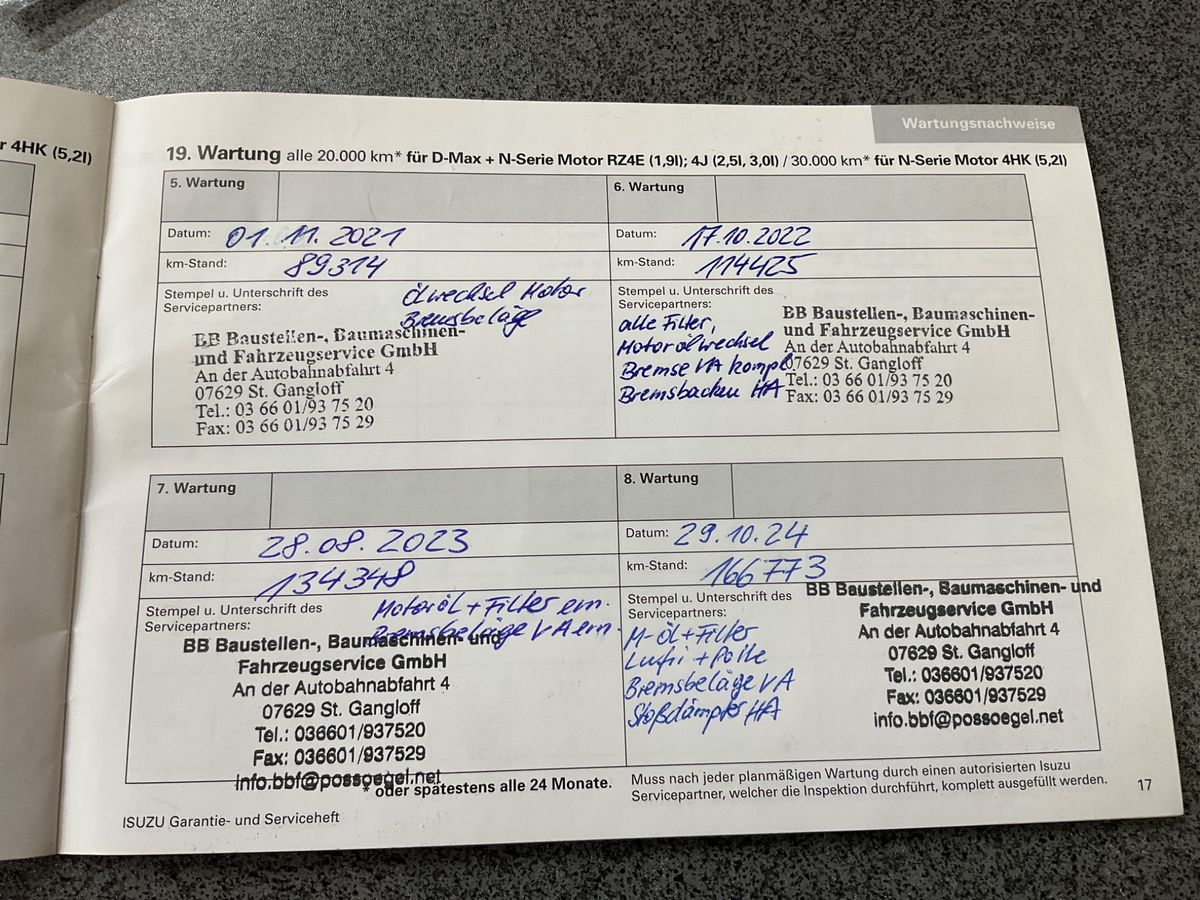 r 4HK (5,2l)
Wartungsnachweise
19. Wartung alle 20.000 km* für D-Max + N-Serie Motor RZ4E (1,9l); 4J (2,5l, 3,0l) / 30.000 km* für N-Serie Motor 4HK (5,2l)
5. Wartung
Datum: 01.11.2021
km-Stand: 89314
Stempel u. Unterschrift des
Servicepartners:
Ölwechsel Motor
Bremsbeläge
BB Baustellen-, Baumaschinen-
und Fahrzeugservice GmbH
An der Autobahnabfahrt 4
07629 St. Gangloff
Tel.: 03 66 01/93 75 20
Fax: 03 66 01/93 75 29
6. Wartung
Datum: 17.10.2022
km-Stand: 114425
Stempel u. Unterschrift des
Servicepartners:
alle Filter,
Motorölwechsel
Bremse VA kompl.
Bremsbacken HA
BB Baustellen-, Baumaschinen-
und Fahrzeugservice GmbH
An der Autobahnabfahrt 4
07629 St. Gangloff
Tel.: 03 66 01/93 75 20
Fax: 03 66 01/93 75 29
7. Wartung
Datum: 28.08.2023
km-Stand: 134348
Stempel u. Unterschrift des
Servicepartners:
Motoröl + Filter ern.
Bremsbeläge VA ern.
BB Baustellen-, Baumaschinen- und
Fahrzeugservice GmbH
An der Autobahnabfahrt 4
07629 St. Gangloff
Tel.: 036601/937520
Fax: 036601/937529
info.bbf@possoegel.net
8. Wartung
Datum: 29.10.24
km-Stand: 166773
Stempel u. Unterschrift des
Servicepartners:
M-Öl + Filter
Lufi + Polle
Bremsbeläge VA
Stoßdämpfer HA
BB Baustellen-, Baumaschinen- und
Fahrzeugservice GmbH
An der Autobahnabfahrt 4
07629 St. Gangloff
Tel.: 036601/937520
Fax: 036601/937529
info.bbf@possoegel.net
* oder spätestens alle 24 Monate.
Muss nach jeder planmäßigen Wartung durch einen autorisierten Isuzu
Servicepartner, welcher die Inspektion durchführt, komplett ausgefüllt werden.
ISUZU Garantie- und Serviceheft
17